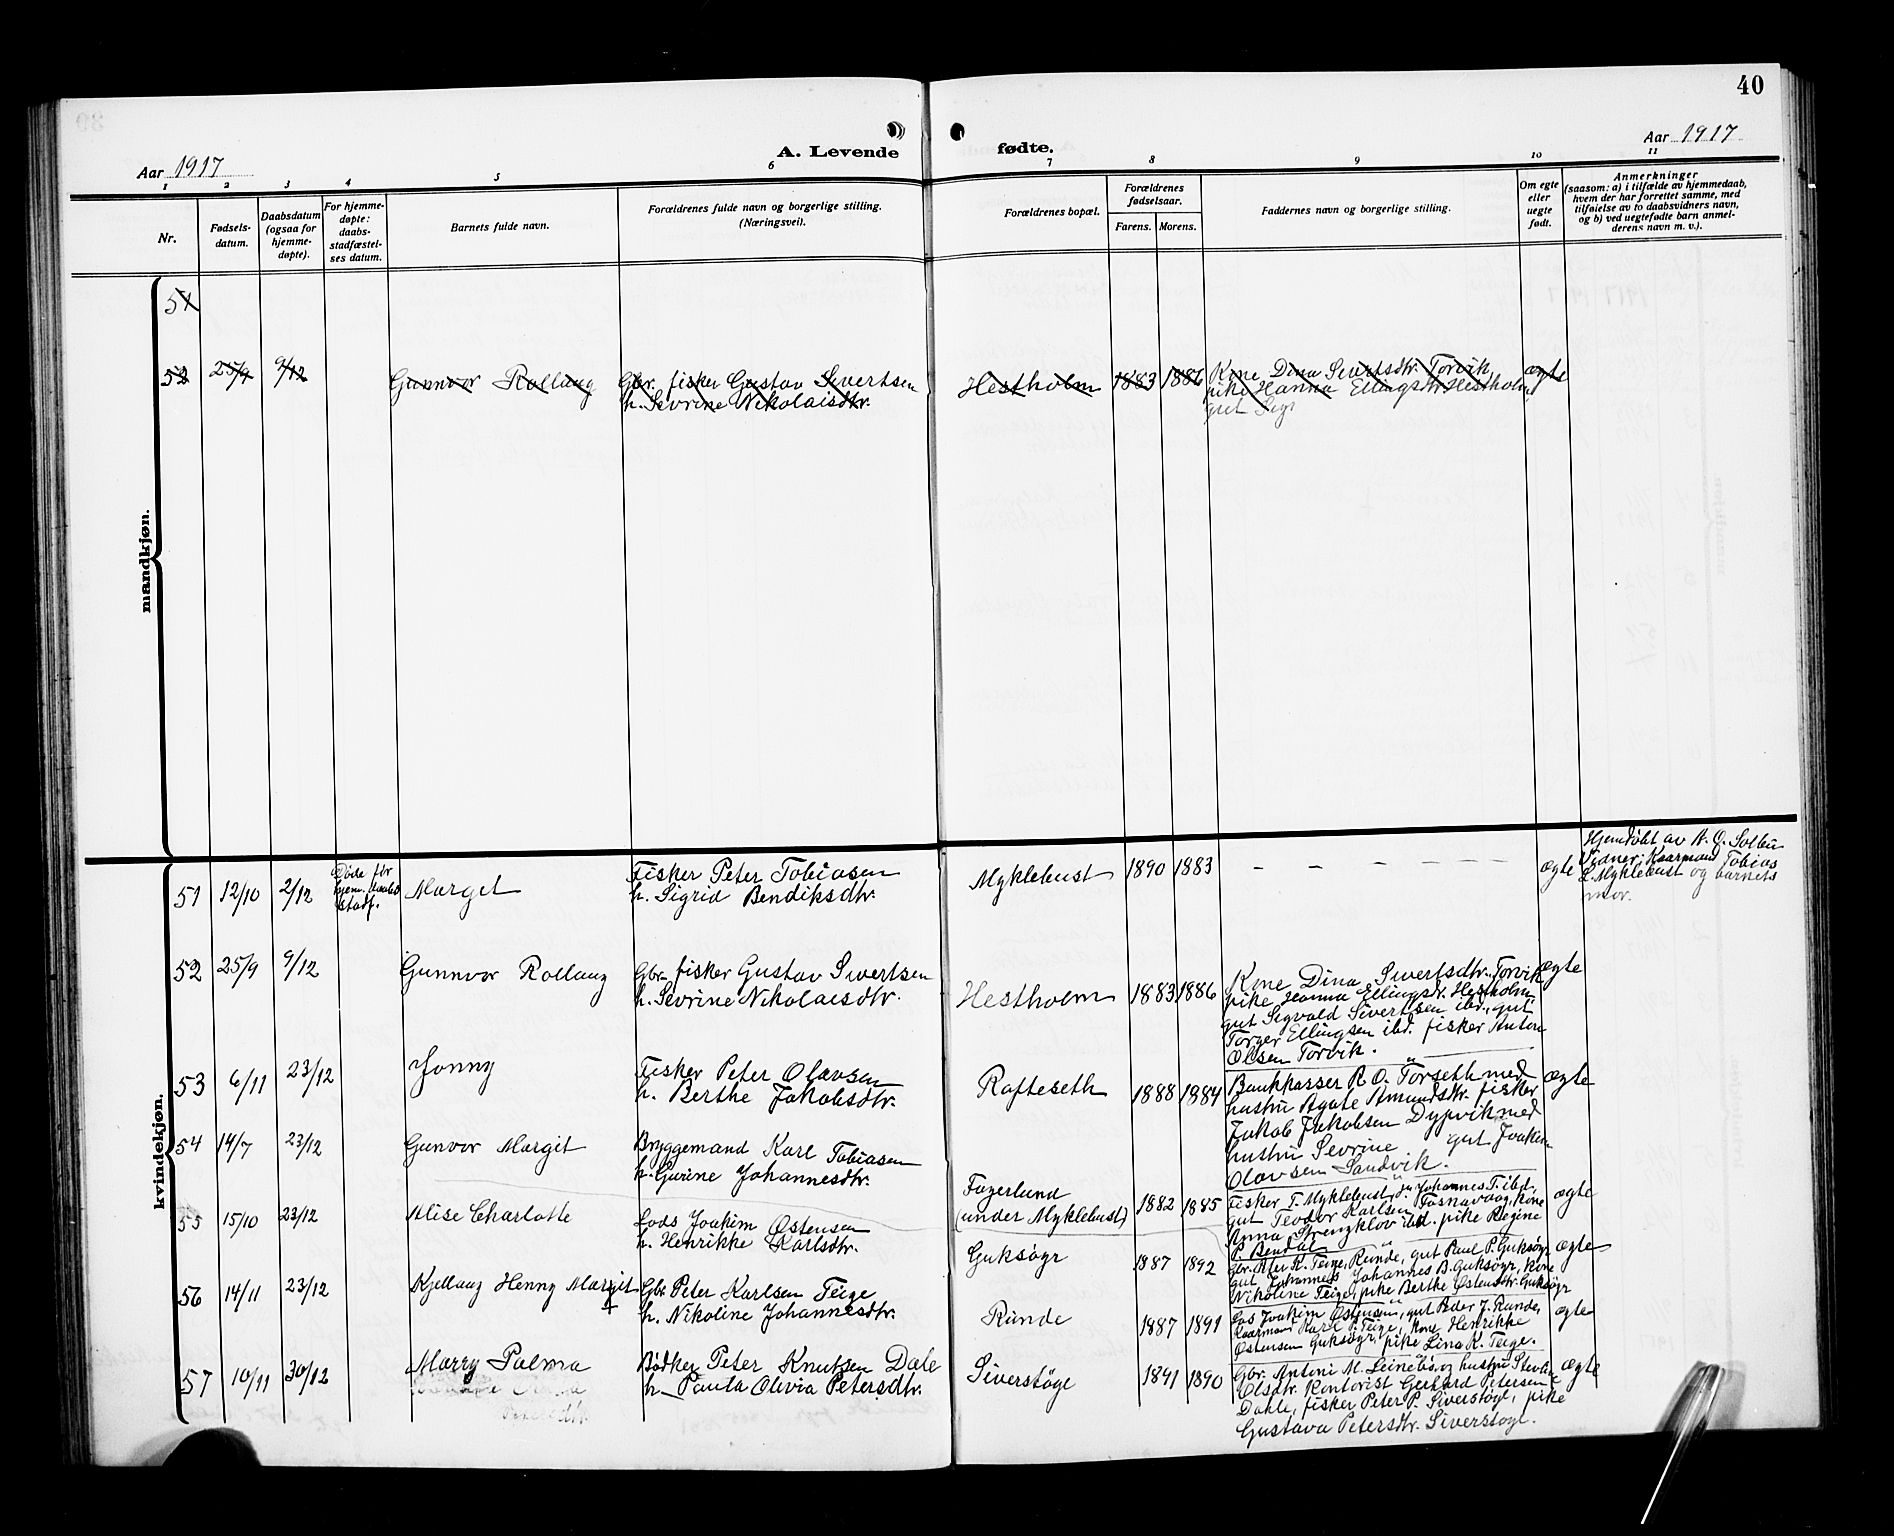 40
Aar 1917
A. Levende
fødte.
Aar 1917
1 2 3 4 5 6 7 8 9 10 11
Nr.
Fødsels-
datum.
Daabsdatum
(ogsaa for
hjemme-
døpte).
For hjemme-
døpte:
daabs-
stadfæstel-
ses datum.
Barnets fulde navn.
Forældrenes fulde navn og borgerlige stilling.
(Næringsvei).
Forældrenes bopæl.
Forældrenes
fødselsaar.
Farens. Morens.
Faddernes navn og borgerlige stilling.
Om egte
eller
uegte
født.
Anmerkninger
(saasom: a) i tilfælde av hjemmedaab,
hvem der har forrettet samme, med
tilføielse av to daabsvidners navn,
og b) ved uegtefødte barn anmel-
derens navn m. v.).
mandkjøn.
51
52 25/9 9/12 Gunnvor Rollaug
Gbr. fisker Gustav Sivertsen
h. Sevrine Nikolaisdtr.
Hestholm 1883 1886
Kone Dina Sivertsdtr. Torvik,
pike Hanna Ellingsdtr Hestholm,
gut Sigv
ægte
kvindekjøn.
51 12/10 2/12
Døde før
hjem. daabs
stadf.
Marget
Fisker Peter Tobiasen
h. Sigrid Bendiksdtr.
Myklebust 1890 1883 – – – – –
ægte
Hjemdøbt av A. O. Solbu
Vidner: Kaarmand Tobias
L. Myklebust og barnets
mor.
52 25/9 9/12 Gunnvor Rollaug
Gbr. fisker Gustav Sivertsen
h. Sevrine Nikolaisdtr.
Hestholm 1883 1886
Kone Dina Sivertsdtr. Torvik
pike Hanna Ellingsdtr. Hestholm
gut Sigvald Sivertsen ibd., gut
Torger Ellingsen ibd. fisker Anton
Olsen Torvik.
ægte
53 6/11 23/12 Jonny
Fisker Peter Olavsen
h. Berthe Jakobsdtr.
Rafteseth 1888 1884
Bankkasser R. O. Torseth med
hustru Agate Amundsdtr. fisker
Jakob Jakobsen Dypvik med
hustru Sevrine gut Joakim
Olavsen Sandvik.
ægte
54 14/7 23/12 Gunvor Margit
Bryggemand Karl Tobiasen
h. Gurine Johannesdtr.
Fagerlund
(under Myklebust) 1882 1885
Fisker T. Myklebust, Johannes T. ibd,
gut Teodor Karlsen, Fosnavaag, kone
Anna Strengklov ibd. pike Regine
P. Bendal
ægte
55 15/10 23/12 Alise Charlotte
Lods Joakim Østensen
h. Henrikke Karlsdtr.
Guksøyr 1887 1892
Gbr. Peter K. Teige, Runde, gut Paul P. Guksøyr,
gut Johannes Johannes B. Guksøyr, kone
Nikoline Teige, pike Berthe Østensdtr. Guksøyr
ægte
56 14/11 23/12 Kjellaug Henny Margit
Gbr. Peter Karlsen Teige
h. Nikoline Johannesdtr.
Runde 1887 1891
Los Joakim Østensen, gut Peder J. Runde,
Kaarmand Karl P. Teige, kone Henrikke
Østensen Guksøyr, pike Lina K. Teige.
ægte
57 10/11 30/12 Marry Palma
Bødker Peter Knutsen Dale
h. Paula Olivia Petersdtr.
Siverstøge 1841 1890
Gbr. Antoni M. Leinebø, og hustru
Olsdtr. Kontorist Gerhard Petersen
Dahle, fisker Peter P. Siverstøyl, pike
Gustava Petersdtr. Siverstøyl.
ægte